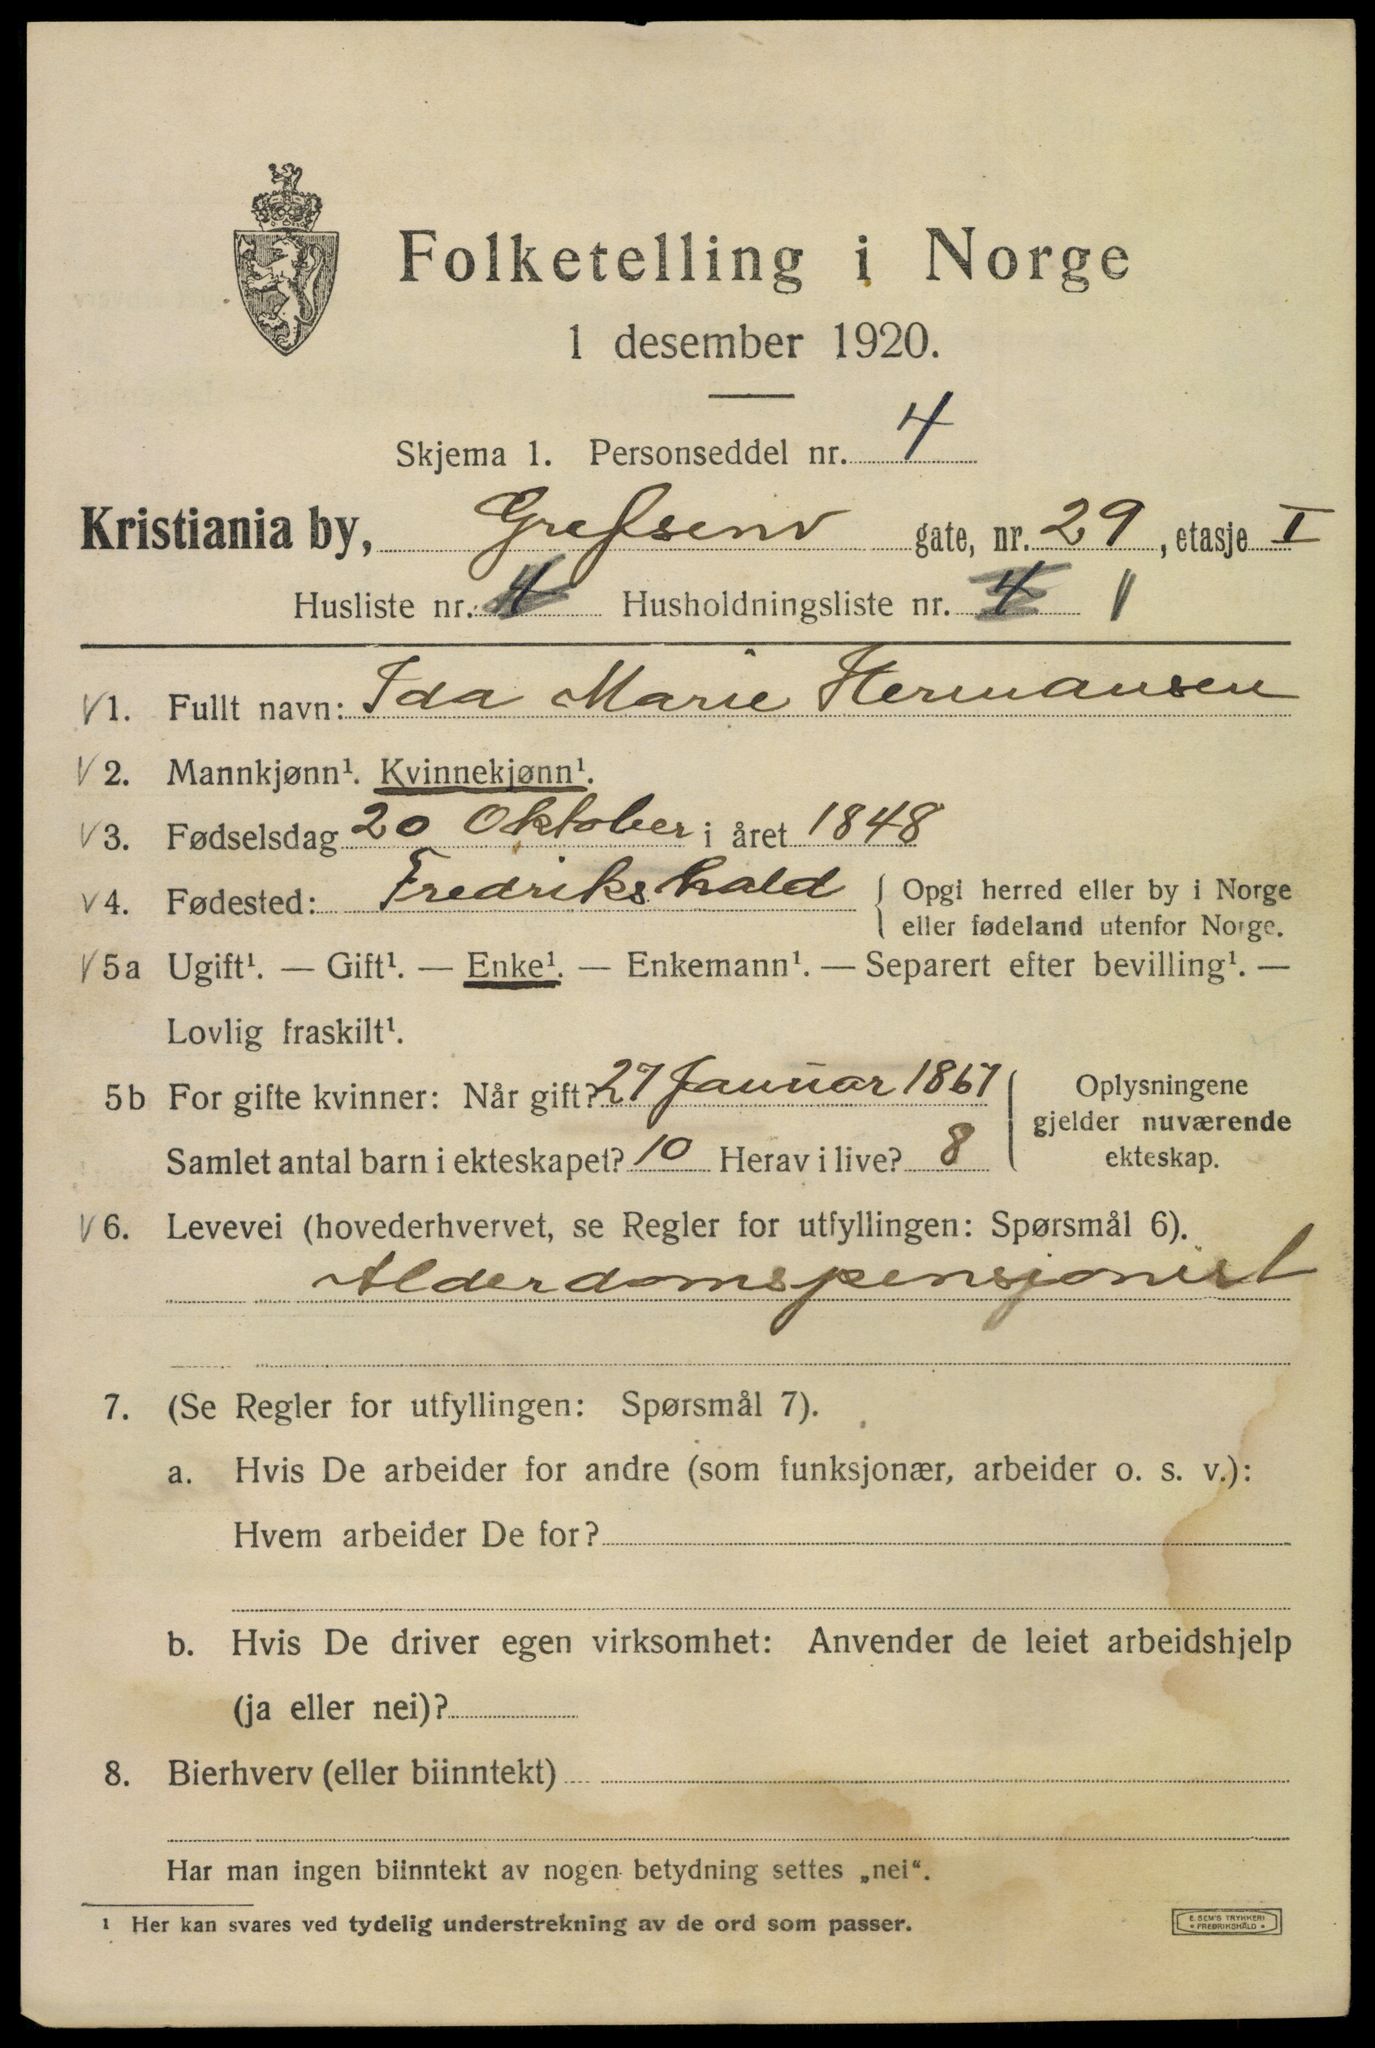 Folketelling i Norge
1 desember 1920.
Skjema 1. Personseddel nr. 4
Kristiania by, Grefsenv gate, nr. 29, etasje I
Husliste nr. 4 Husholdningsliste nr. 4 1
V1. Fullt navn: Ida Marie Hermansen
V2. Mannkjønn¹. Kvinnekjønn¹.
V3. Fødselsdag 20 Oktober i året 1848
V4. Fødested: Fredrikshald { Opgi herred eller by i Norge
eller fødeland utenfor Norge.
V5a Ugift¹. — Gift¹. — Enke¹. — Enkemann¹. — Separert efter bevilling¹. —
Lovlig fraskilt¹.
5b For gifte kvinner: Når gift? 27 Januar 1867
Samlet antal barn i ekteskapet? 10 Herav i live? 8
Oplysningene
gjelder nuværende
ekteskap.
V6. Levevei (hovederhvervet, se Regler for utfyllingen: Spørsmål 6).
Alderdomspensjonist
7. (Se Regler for utfyllingen: Spørsmål 7).
a. Hvis De arbeider for andre (som funksjonær, arbeider o. s. v.):
Hvem arbeider De for?
b. Hvis De driver egen virksomhet: Anvender de leiet arbeidshjelp
(ja eller nei)?
8. Bierhverv (eller biinntekt)
Har man ingen biinntekt av nogen betydning settes „nei“.
¹ Her kan svares ved tydelig understrekning av de ord som passer.
E. SEM'S TRYKKERI
• FREDRIKSHALD •